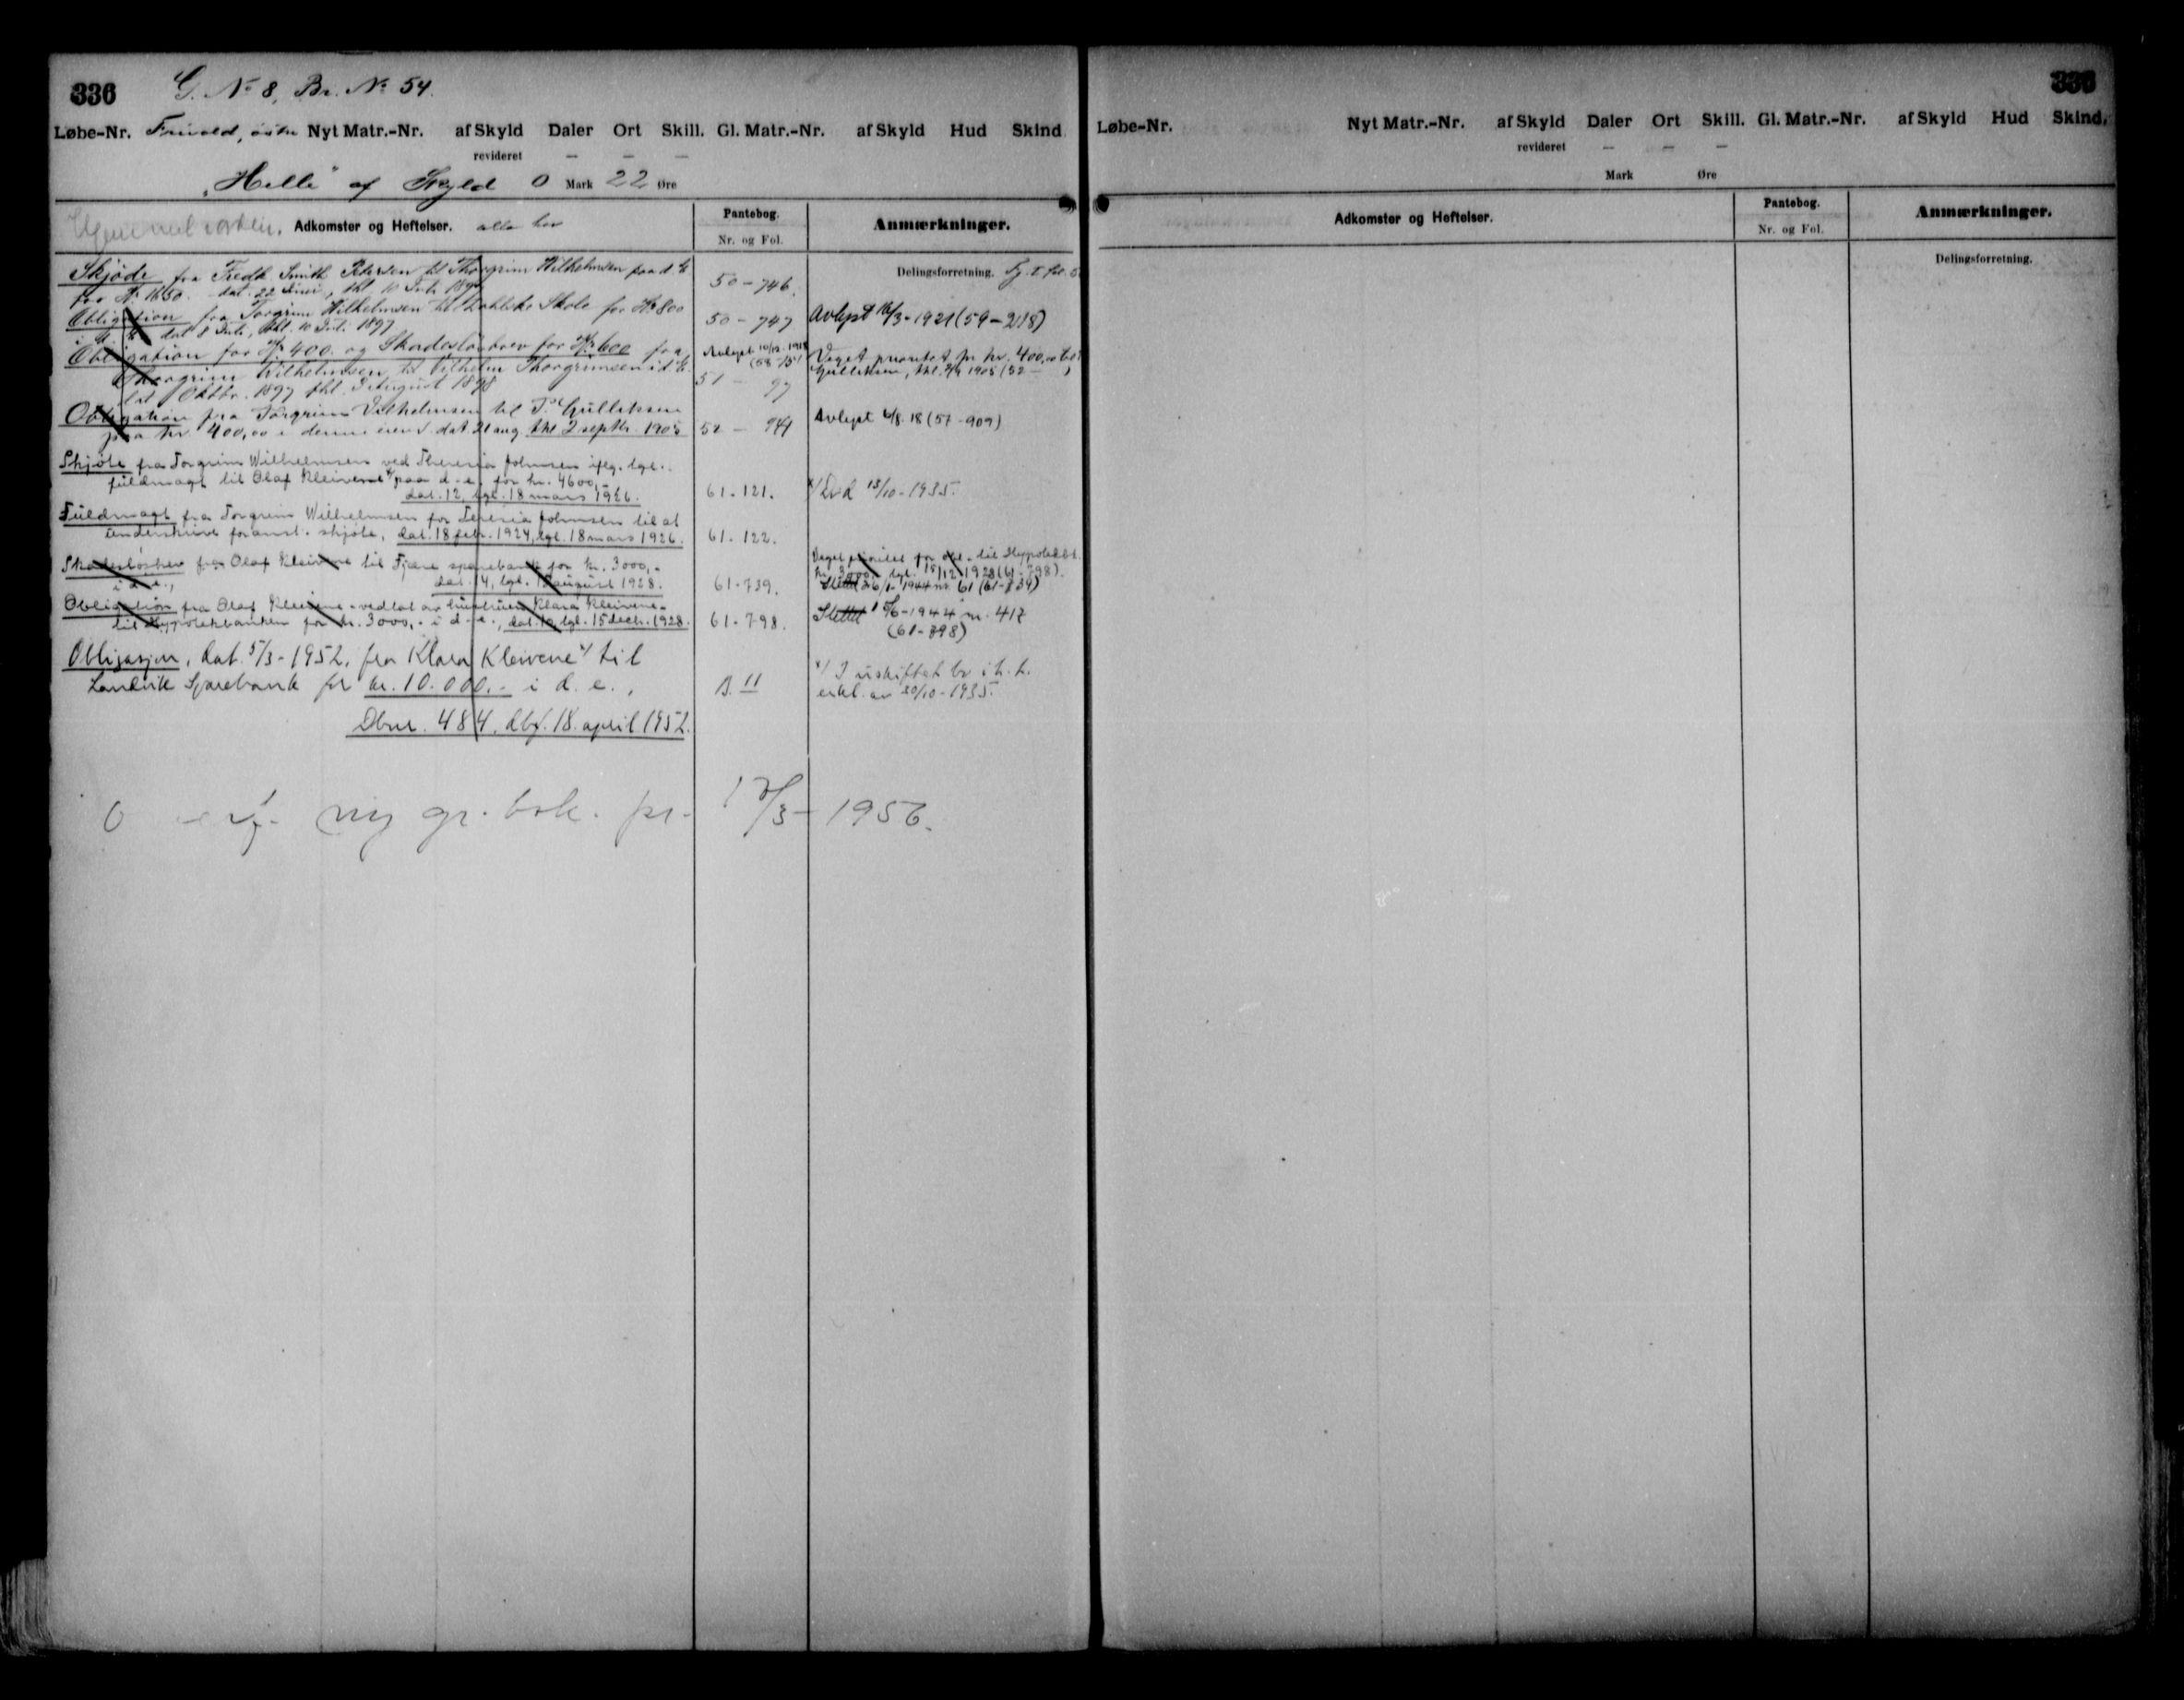 336 G. No 8, Br. No 54.
Løbe-Nr. Frivold, østre Nyt Matr.-Nr. af Skyld Daler Ort Skill. Gl. Matr.-Nr. af Skyld Hud Skind
revideret — — —
"Helle" af Skyld 0 Mark 22 Øre
Adkomster og Heftelser.
Pantebog.
Nr. og Fol.
Anmærkninger.
Delingsforretning.
Skjøde fra Fredk Smith Petersen til Thorgrim Wilhelmsen paa d. E.
for Kr. 1650. dat. 22 Juni, thl. 10 Juli 1897
50 - 746.
Obligation fra Torgrim Wilhelmsen til Skole for Kr 800
i d. E. dat 8 Juli, thl. 10 Juli 1897
50 - 747
Avlyst 16/3-1921 (59-218)
Obligation for Kr 400. og Skadesløsbrev for Kr 600 fra
Thorgrim Wilhelmsen til Vilhelm Thorgrimsen i d. E.
dat 1 Oktbr. 1897 thl. August 1898
51 - 97
Avlyst 10/12. 1918
Veget prioritet for kr. 400,00 til
Gulliksen, thl. 2/9 1905 (52 - )
Obligation fra Torgrim Vilhelmsen til P. Gulliksen
for kr 400,00 i denne eien d. dat 21 aug. thl 2 septbr. 1905
52 - 944
Avlyst 6/8. 18 (57-909)
Skjøte fra Torgrim Wilhelmsen ved Theresia Johnsen iflg. tgl.
fuldmagt til Olaf Kleivene x/ paa d. e. for kr. 4600,-
dat. 12, tgl. 18 mars 1926.
61-121.
x/ Død 13/10-1935.
Fuldmagt fra Torgrim Wilhelmsen for Teresia Johnsen til at
underskrive foranst. skjøte, dat. 18 febr. 1924, tgl. 18 mars 1926.
61-122.
Skadesløsbrev fra Olaf Kleivene til Fjære sparebank for kr. 3000,-
i d. e., dat. 14, tgl. 15 august 1928.
61-739.
Veget prioritet for obl. til Hypotekbk.
kr. 3000,- tgl. 15/12 1928 (61-798).
Slettet 26/1-1944 nr. 61 (61-739)
Obligation fra Olaf Kleivene - vedtat av hustruen Klara Kleivene -
til Hypotekbanken for kr. 3000,- i d. e., dat. 10, tgl. 15 decbr. 1928.
61-798.
Slettet 1944 nr. 417
(61-798)
Obligasjon, dat. 5/3-1952, fra Klara Kleivene x/ til
Landvik Sparebank for kr. 10.000.- i d. e.,
B. 11
x/ I uskiftet bo i h. t.
erkl. av 30/10-1935.
Dbnr. 484, dbf. 18. april 1952.
ny gr. bok. pr. 1956.
336
Løbe-Nr. Nyt Matr.-Nr. af Skyld Daler Ort Skill. Gl. Matr.-Nr. af Skyld Hud Skind.
revideret — — —
Mark Øre
Adkomster og Heftelser.
Pantebog.
Nr. og Fol.
Anmærkninger.
Delingsforretning.